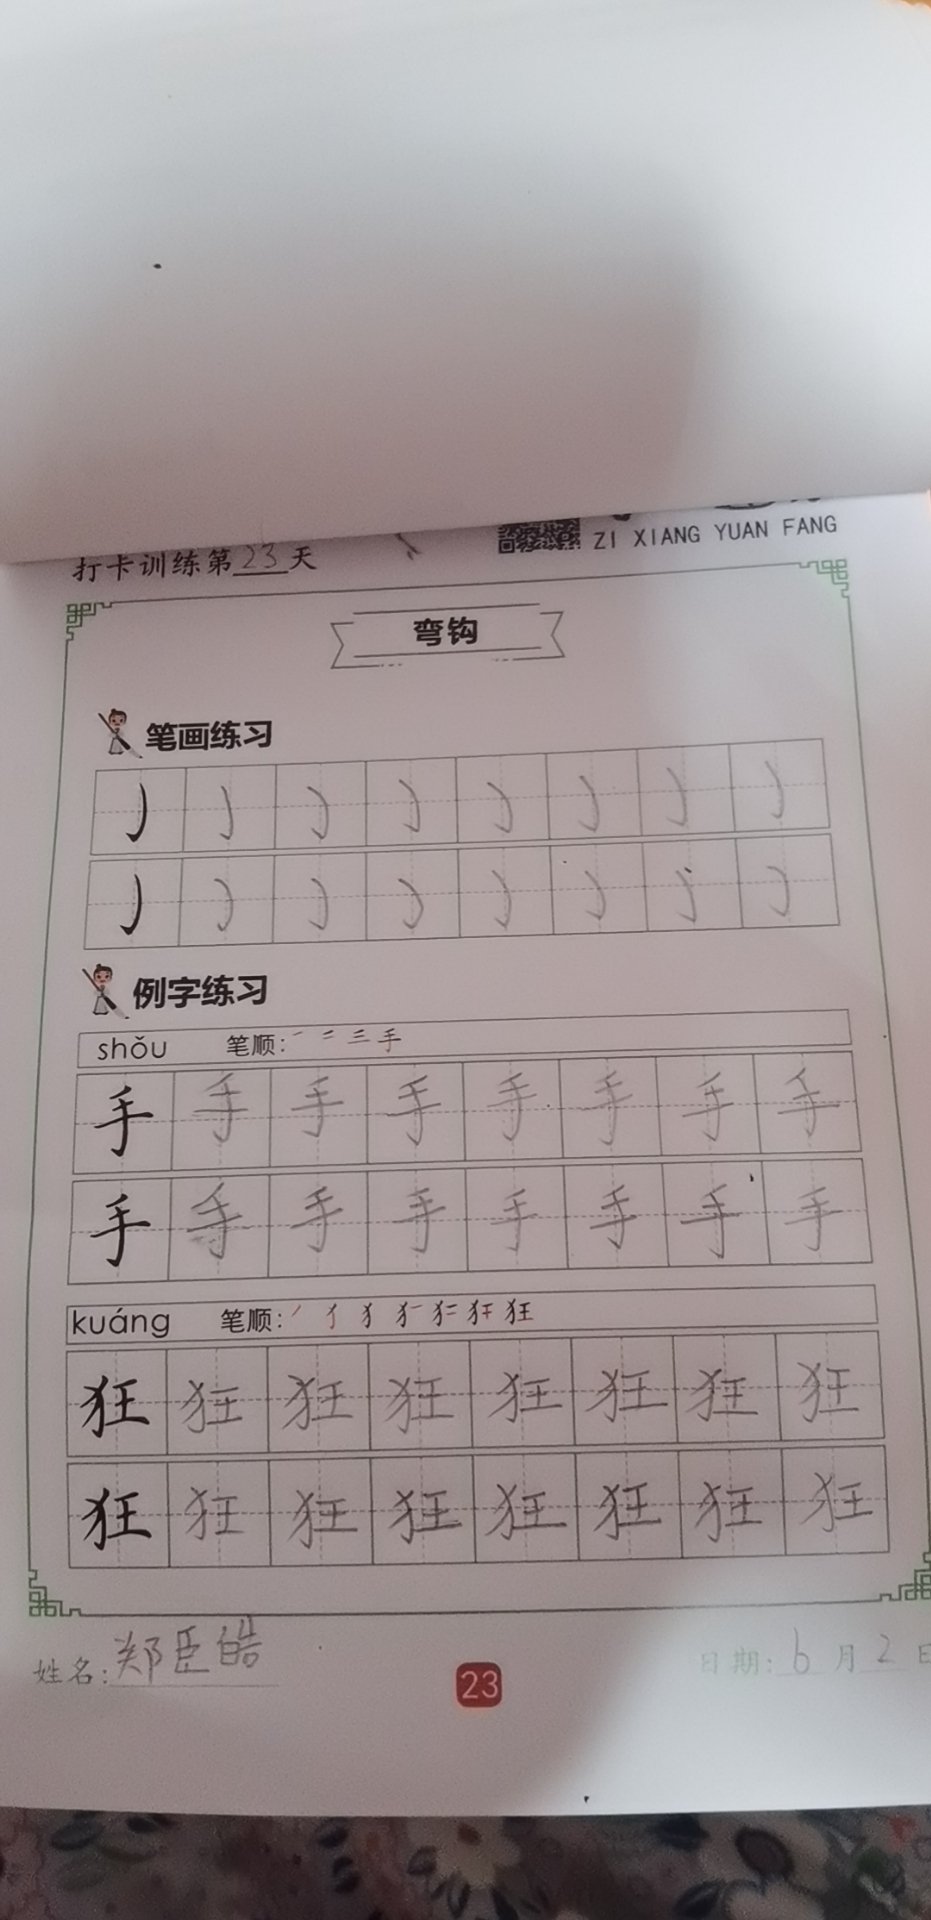 打卡训练第23天
ZI XIANG YUAN FANG
弯钩
笔画练习
例字练习
shǒu 笔顺: 一 二 三 手
手 手 手 手 手 手 手 手
手 手 手 手 手 手 手 手
kuáng 笔顺: 狂
狂 狂 狂 狂 狂 狂 狂 狂
狂 狂 狂 狂 狂 狂 狂 狂
姓名: 郑臣皓
23
日期: 6月2日